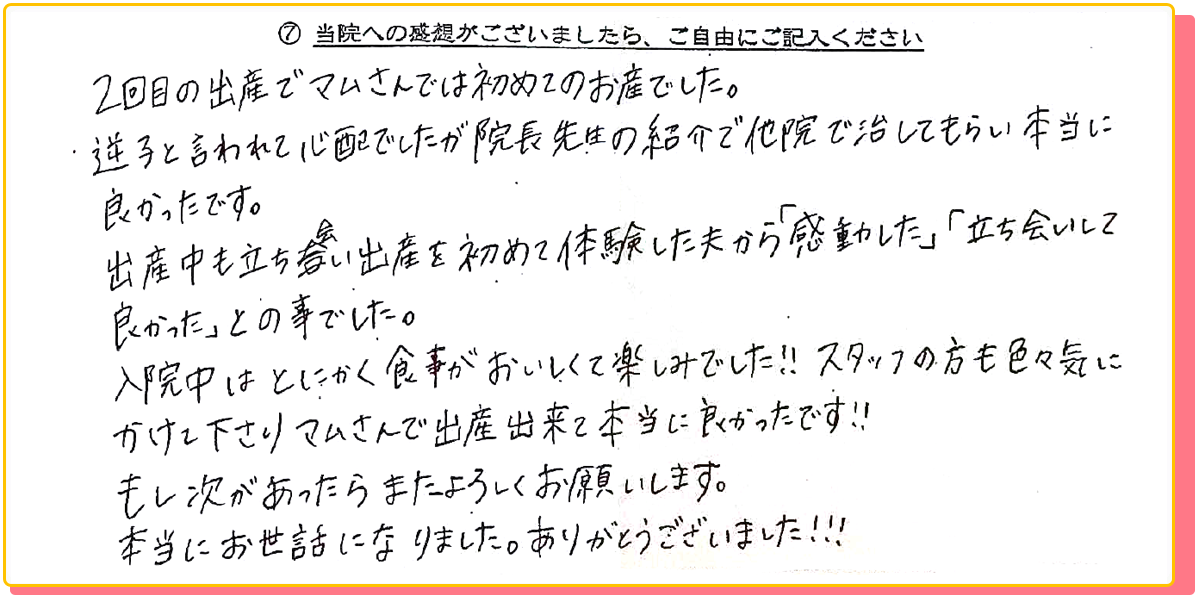 ⑦ 当院への感想がございましたら、ご自由にご記入ください
2回目の出産でマムさんでは初めてのお産でした。
逆子と言われて心配でしたが院長先生の紹介で他院で治してもらい本当に
良かったです。
出産中も立ち会い出産を初めて体験した夫から「感動した」「立ち会いして
良かった」との事でした。
入院中はとにかく食事がおいしくて楽しみでした!! スタッフの方も色々気に
かけて下さりマムさんで出産出来て本当に良かったです!!
もし次があったらまたよろしくお願いします。
本当にお世話になりました。ありがとうございました!!!